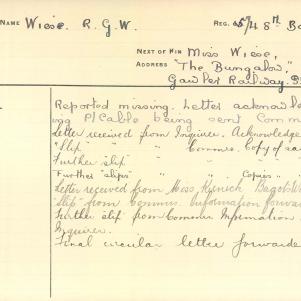 NAME Wiese. R. G. W. REG. 8th
NEXT OF KIN Miss Wiese,
ADDRESS "The Bungalow"
Gawler Railway.
Reported missing. Letter acknowle
ing P/Cable being sent Comm
Letter received from Inquirer. Acknowledge
"Slip" " " Commrs. Copy of sa
Further slip " "
Further "slips" " " Copies " "
Letter received from Miss Bagot
Slip" from Commrs. Information forwar
Further slip from Commrs Information
Inquirer.
Final circular letter forwarde